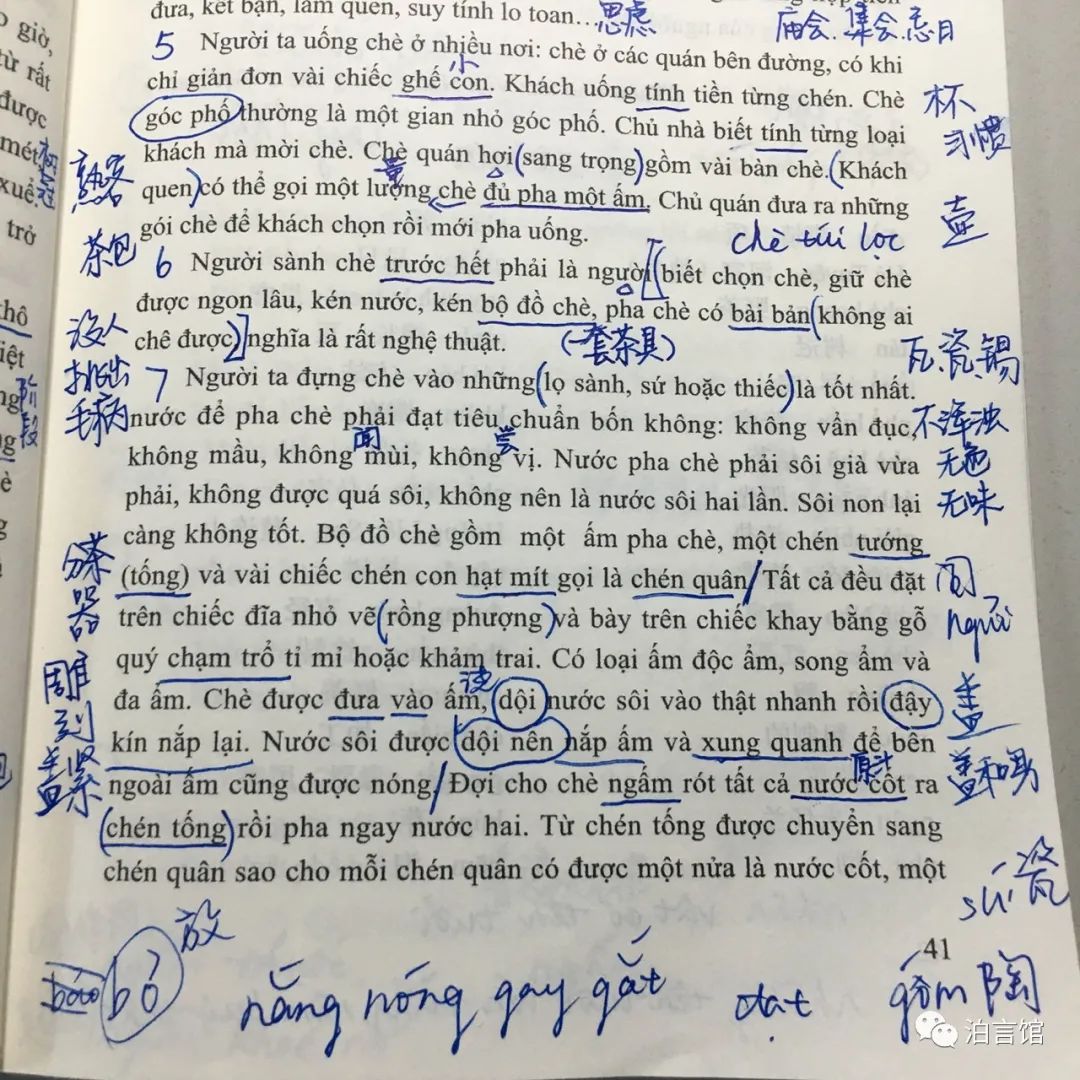 đưa, kết bạn, làm quen, suy tính lo toan... 思虑 庙会 集会 忌日
giờ,
từ rất
được
mét
xuể.
trở
thô
iệt
阶段
5 Người ta uống chè ở nhiều nơi: chè ở các quán bên đường, có khi
小
chỉ giản đơn vài chiếc ghế con. Khách uống tính tiền từng chén. Chè 杯
góc phố thường là một gian nhỏ góc phố. Chủ nhà biết tính từng loại 习惯
khách mà mời chè. Chè quán hơi (sang trọng) gồm vài bàn chè. (Khách
熟客 量
quen) có thể gọi một lượng chè đủ pha một ấm. Chủ quán đưa ra những 壶
gói chè để khách chọn rồi mới pha uống. chè túi lọc
茶包
6 Người sành chè trước hết phải là người [(biết chọn chè, giữ chè
được ngon lâu, kén nước, kén bộ đồ chè, pha chè có bài bản (không ai
chê được)] nghĩa là rất nghệ thuật. (一套茶具) 瓦、瓷、锡
没人挑出毛病
7 Người ta đựng chè vào những (lọ sành, sứ hoặc thiếc) là tốt nhất.
nước để pha chè phải đạt tiêu chuẩn bốn không: không vẩn đục, 不浑浊
闻 尝
không mầu, không mùi, không vị. Nước pha chè phải sôi già vừa 无色
phải, không được quá sôi, không nên là nước sôi hai lần. Sôi non lại 无味
càng không tốt. Bộ đồ chè gồm một ấm pha chè, một chén tướng
分茶器
(tống) và vài chiếc chén con hạt mít gọi là chén quân/ Tất cả đều đặt 闻
trên chiếc đĩa nhỏ vẽ (rồng phượng) và bày trên chiếc khay bằng gỗ ngửi
quý chạm trổ tỉ mỉ hoặc khảm trai. Có loại ấm độc ẩm, song ẩm và
雕刻 浇
đa ẩm. Chè được đưa vào ấm, dội nước sôi vào thật nhanh rồi đậy 盖
kín nắp lại. Nước sôi được dội nên nắp ấm và xung quanh để bên
盖紧 原汁
ngoài ấm cũng được nóng/ Đợi cho chè ngấm rót tất cả nước cốt ra
(chén tống) rồi pha ngay nước hai. Từ chén tống được chuyển sang
chén quân sao cho mỗi chén quân có được một nửa là nước cốt, một
sứ 瓷
放
bỏ
41
nắng nóng gay gắt đạt gốm 陶
泊言馆